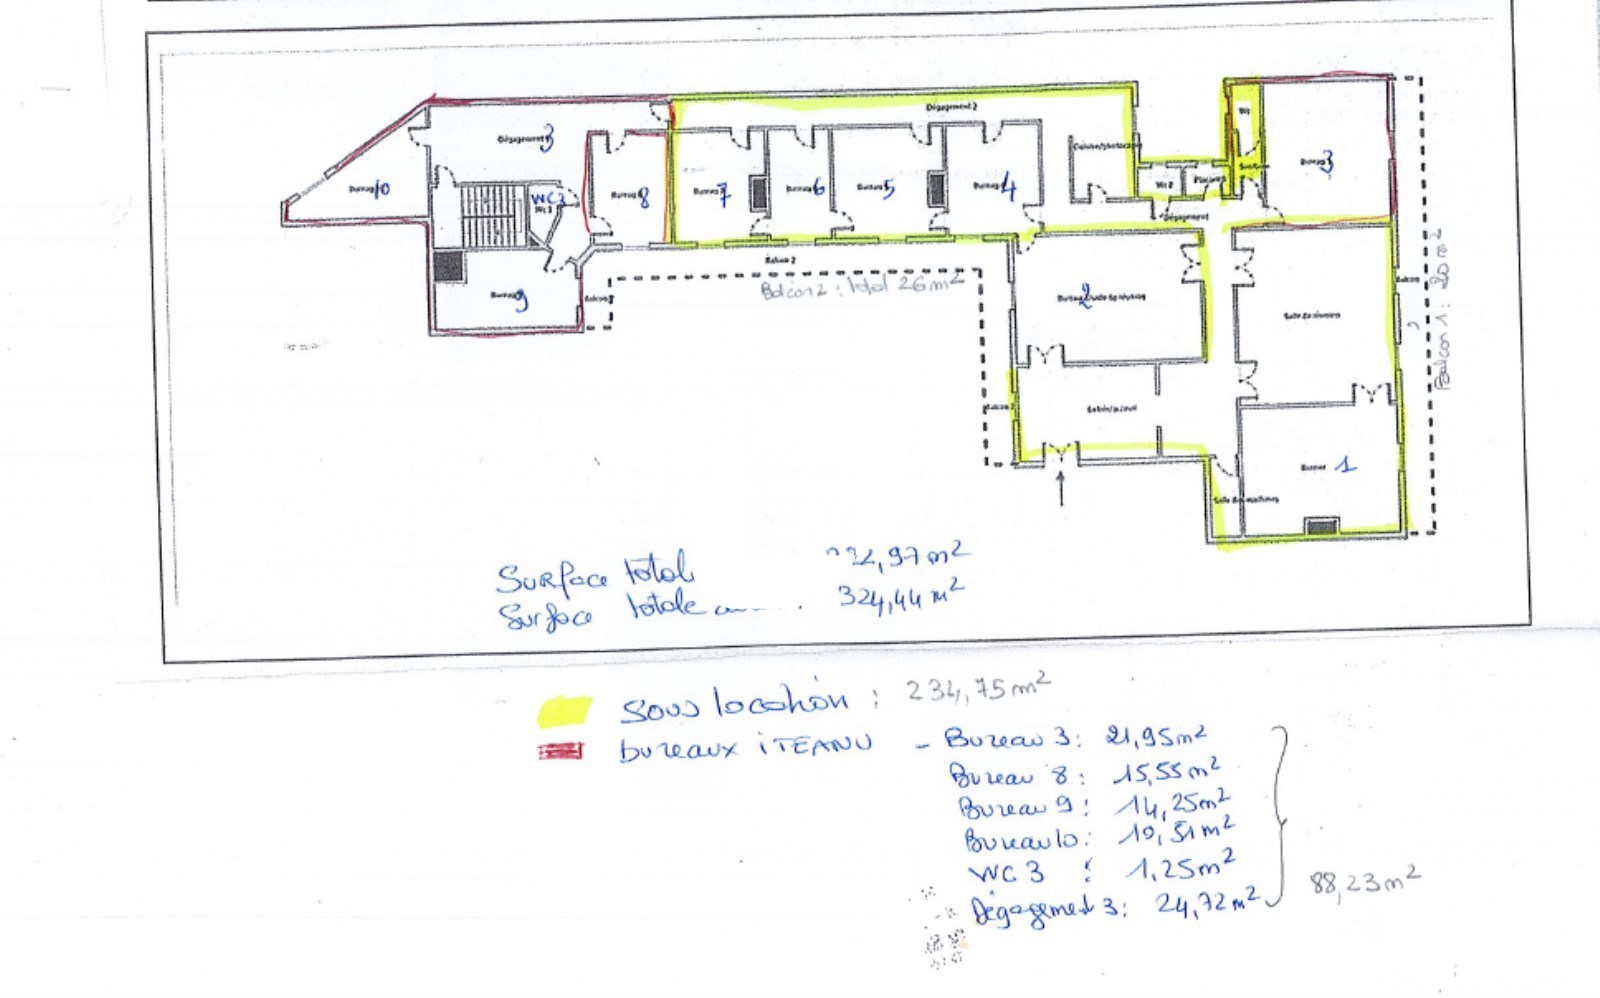 Dégagement 2
Dégagement 3
Bureau 10
WC3
Wc 3
Bureau 8
Bureau 7
Bureau 6
Bureau 5
Bureau 4
Cuisine/photocopie
Wc 2
Placard
Wc
Bureau 3
Dégagement
Balcon 2
Balcon 2 : total 26 m²
Bureau 9
Balcon 2
Bureau 2
Salle de réunion
Balcon
Balcon 1 : 20 m²
Balcon 2
Salon/accueil
Bureau 1
Salle des machines
Surface total 22,97 m²
Surface totale 324,44 m²
Sous location : 234,75 m²
bureaux iTEANU - Bureau 3: 21,95 m²
Bureau 8: 15,55 m²
Bureau 9: 14,25 m²
Bureau 10: 10,51 m²
WC 3 : 1,25 m²
Dégagement 3: 24,72 m²
88,23 m²